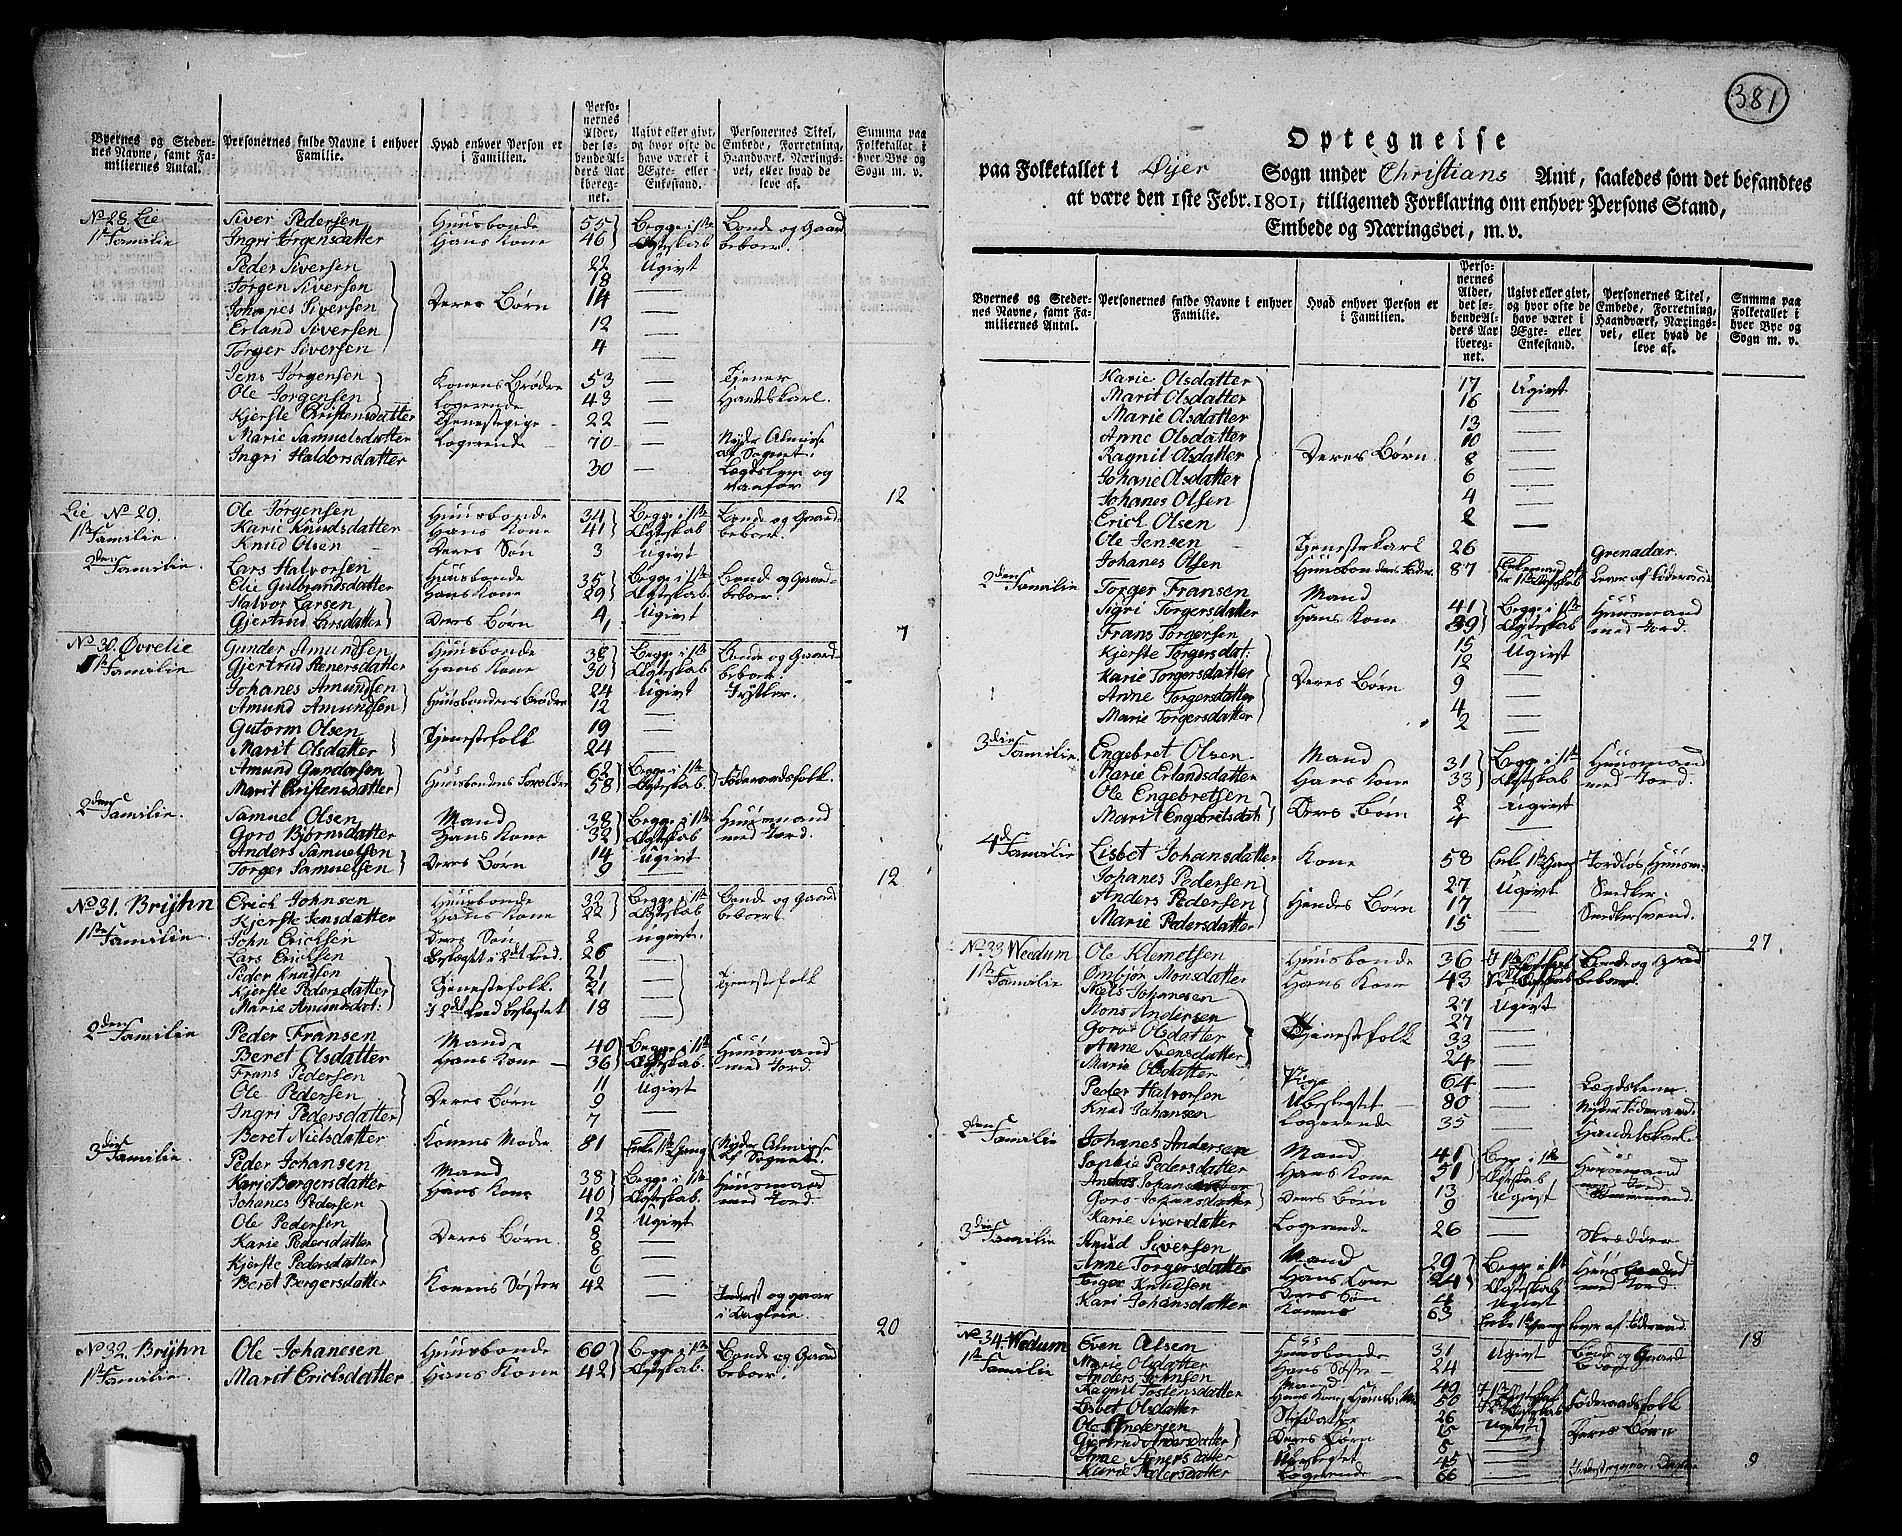 Byernes og Steder- nes Navne, samt Fa- miliernes Antal.
Personernes fulde Navne i enhver Familie.
Hvad enhver Person er i Familien.
Perso- nernes Alder, det lø- bende Al- ders Aar iberegnet.
Ugivt eller givt, og hvor ofte de have været i Ægte- eller Enkestand.
Personernes Titel, Embede, Forretning, Haandværk, Nærings- vei, eller hvad de leve af.
Summa paa Folketallet i hver Bye og Sogn m. v.
No 28. Lie Siver Pedersen Huusbonde 55 Begge i 1ste Bonde og Gaard
1ste Familie Ingri Jørgensdatter Hans Kone 46 Ægteskab beboer
Peder Siversen 22 Ugivt
Jørgen Siversen 18 —
Johanes Siversen Deres Børn 14 —
Erland Siversen 12 —
Torger Siversen 4 —
Jens Jørgensen Konens Brødre 53 — Tjener
Ole Jørgensen Logerende 43 — Handelskarl.
Kjerste Christensdatter Tjenestepige 22 —
Marie Samuelsdatter Logerende 70 — Nyder Almisse af Sognet.
Ingri Haldorsdatter 30 — Lægdslem og vanfør
12
Lie No 29. Ole Jørgensen Huusbonde 34 Begge i 1ste Bonde og Gaard-
1ste Familie. Karie Knudsdatter Hans Kone 41 Ægteskab beboer.
Knud Olsen Deres Søn 3 Ugivt
2den Familie. Lars Halvorsen Huusbonde 35 Begge i 1ste Bonde og Gaard-
Elie Gulbrandsdatter Hans Kone 29 Ægteskab beboer.
Halvor Larsen
Gjertrud Larsdatter Deres Børn 4 Ugivt
7
No 30. Øvrelie Gunder Amundsen Huusbonde 38 Begge i 1ste Bonde og Gaard-
1ste Familie Gjertrud Stenersdatter Hans Kone 30 Ægteskab beboer.
Johanes Amundsen 24 Ugivt
Amund Amundsen Huusbondens Brødre 12 —
Gutorm Olsen 19 —
Marit Olsdatter Tjenestefolk 24 —
Amund Gundersen 62 Begge i 1ste
Marit Christensdatter Huusbondens Forældre 58 Ægteskab Føderaadsfolk.
2den Familie. Samuel Olsen Mand 38 Begge i 1ste Huusmand
Goro Bjørnsdatter Hans Kone 32 Ægteskab med Jord.
Anders Samuelsen 14 Ugivt
Torger Samuelsen Deres Børn 9 —
12
No 31. Brijhn Erich Johnsen Huusbonde 32 Begge i 1ste Bonde og Gaard
1ste Familie. Kjerste Jensdatter Hans Kone 22 Ægteskab beboer.
John Erichsen Deres Søn 2 ugivt.
Lars Erichsen 26 —
Peder Knudsen 21 —
Kjerste Pedersdatter Tjenestefolk. 21 — Tjenestefolk
Marie Amundsdat. 18 —
2den Familie Peder Fransen Mand 40 Begge i 1ste Huusmand
Beret Olsdatter Hans Kone 36 Ægteskab. med Jord.
Frans Pedersen 11 Ugivt
Ole Pedersen Deres Børn 9 —
Ingri Pedersdatter 7 —
Beret Nielsdatter Konens Moder 81 Enke 1ste Gang Nyder Almisse af Sognet.
3die Familie. Peder Johansen Mand 38 Begge i 1ste Huusmand
Kari Børgersdatter Hans Kone 40 Ægteskab. med Jord.
Johanes Pedersen 12 Ugivt
Ole Pedersen 8 —
Karie Pedersdatter Deres Børn. 8 —
Kjerste Pedersdatter 6 —
Beret Børgersdatter Konens Søster 42 — Inderst og gaar i Dagleie.
20
No 32. Brijhn Ole Johanesen Huusbonde 60 Begge i 1ste Bonde og Gaard
1ste Familie. Marit Erichsdatter Hans Kone 42 Ægteskab. beboer.
381
Optegnelse
paa Folketallet i Øijer Sogn under Christians Amt, saaledes som det befandtes
at være den 1ste Febr. 1801, tilligemed Forklaring om enhver Persons Stand,
Embede og Næringsvei, m. v.
Byernes og Steder- nes Navne, samt Fa- miliernes Antal.
Personernes fulde Navne i enhver Familie.
Hvad enhver Person er i Familien.
Perso- nernes Alder, det lø- bende Al- ders Aar iberegnet.
Ugivt eller givt, og hvor ofte de have været i Ægte- eller Enkestand.
Personernes Titel, Embede, Forretning, Haandværk, Nærings- vei, eller hvad de leve af.
Summa paa Folketallet i hver Bye og Sogn m. v.
Karie Olsdatter 17 Ugivt
Marit Olsdatter 16 —
Marie Olsdatter 13 —
Anne Olsdatter 10 —
Ragnil Olsdatter Deres Børn 8 —
Johane Olsdatter 6 —
Johanes Olsen 4 —
Erich Olsen 2 —
Ole Jensen Tjenestekarl 26 — Grenadar.
Johanes Olsen Huusbondens Fader 87 Enkemand efter 1ste Ægteskab Lever af Føderaad
2den Familie Torger Fransen Mand 41 Begge i 1ste Huusmand
Sigri Torgersdatter Hans Kone 39 Ægteskab med Jord.
Frans Torgersen 15 Ugivt
Kjerste Torgersdat: 12 —
Karie Torgersdatter Deres Børn 9 —
Anne Torgersdatter 4 —
Marie Torgersdatter 2 —
3die Familie Engebret Olsen Mand 31 Begge i 1ste Huusmand
Marie Erlandsdatter Hans Kone 33 Ægteskab med Jord.
Ole Engebretsen 8 Ugivt
Marit Engebretsdat: Deres Børn 4 —
4de Familie Lisbet Johansdatter Kone 58 Enke 1ste Gang Jordløs Huusm.
Johanes Pedersen 27 Ugivt Snedker.
Anders Pedersen Hendes Børn 17 — Snedkersvend.
Marie Pedersdatter 15 —
27
No 33 Wedum Ole Klemetsen Huusbonde 36 Bonde og Gaard
1ste Familie Ombjør Monsdatter Hans Kone 43 beboer.
Niels Johansen 27 Ugivt
Mons Andersen 27 —
Goro Olsdatter Tjenestefolk 33 —
Anne Svensdatter 24 —
Marie Olsdatter Pige 64 — Lægdslem
Peder Halvorsen Ubeslegtet 80 — Nyder Føderaad.
Knud Johansen Logerende 35 — Handelskarl.
2den Familie Johanes Andersen Mand 41 Begge i 1ste Huusmand
Sophie Pedersdatter Hans Kone 51 Ægteskab med Jord
Anders Johansen 13 Ugivt
Goro Johansdatter Deres Børn 9 —
Karie Siversdatter Logerende 26 —
3die Familie Knud Siversen Mand 29 Begge i 1ste Skrædder
Anne Torgersdatter Hans Kone 24 Ægteskab med Jord.
Torger Knudsen Deres Søn 4 Ugivt
Kari Johansdatter Konens 63 Enke 1ste Gang lever af Føderaad.
18
No 34. Wedum Even Olsen Huusbonde 31 Ugivt Bonde og Gaard
1ste Familie Marie Olsdatter Hans Søster 24 — beboer
Anders Johnsen Mand 49
Ragnil Tostensdatter Hans Kone 50 Føderaadsfolk
Lisbet Olsdatter Stifdatter 26 Ugivt
Ole Andersen 15
Gjertrud Andersdatter Deres Børn 8 Deres Børn
Anne Stenersdatter Ubeslegtet 45 —
Karie Pedersdatter Logerende 66 —
9